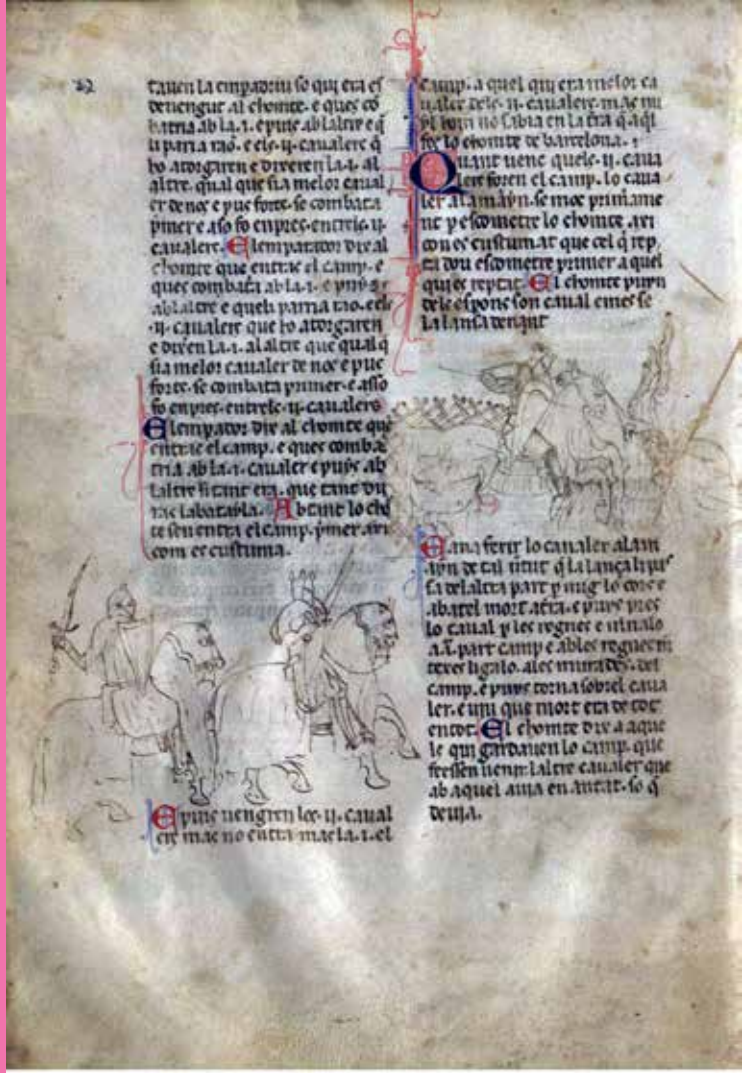 tauen la empadriu so qui era es
deuengut al chomte. e ques cō
batria ab la .i. e puis ab laltre e q̄
li parria rao. e els .ii. caualers q̄
ho atorgaren e dixeren la .i. al
altre. qual que sia melor caual
er de nos e pus forts. se combata
primer e aso fo enpres. entrels .ii.
caualers. El emparador dix al
chomte que entras el camp. e
ques combata ab la .i. e puys
ab laltre e queli parria rao. e els
.ii. caualers que ho atorgaren
e dixen la .i. al altre que qual q̄
sia melor caualer de nos e pus
forts. se combata primer. e asso
fo enpres. entrels .ii. caualers
El emparador dix al chomte que
entras el camp. e ques comba
tria ab la .i. caualer e puys ab
laltre si tant era. que tant du
ras la batayla. Ab tant lo cho
te sen entra el camp. p̄mer. axi
com es custuma.
E puis uengren los .ii. caual
ers mas no entra mas la .i. el
camp. a quel qui era melor ca
ualer dels .ii. caualers. mas nu
yl hom no sabia en la t̄ra q̄ aq̄l
fos lo chomte de barcelona.
Quant uenc quels .ii. caua
lers foren el camp. lo caua
ler alamayn. se moc primame
nt p escometre lo chomte. axi
con es custumat que cel q̄ rep
ta dou escometre primer a quel
qui es reptat. El chomte puyn
dels espons son caual e mes se
la lansa denant
E ana ferir lo caualer alam
ayn de tal uirtut q̄ la lança li pas
sa del altra part p mig lo cors e
abatel mort a t̄ra. e puys pres
lo caual p les regnes e menalo
a .i. part camp e ab les regnes m
teres ligalo. a les murades. del
camp. e puys torna sobrel caua
ler. e uiu que mort era de tot
en tot. El chomte dix a aque
ls qui gardauen lo camp. que
feessen uenir laltre caualer que
ab aquel auia en antat. so q̄
deuia.